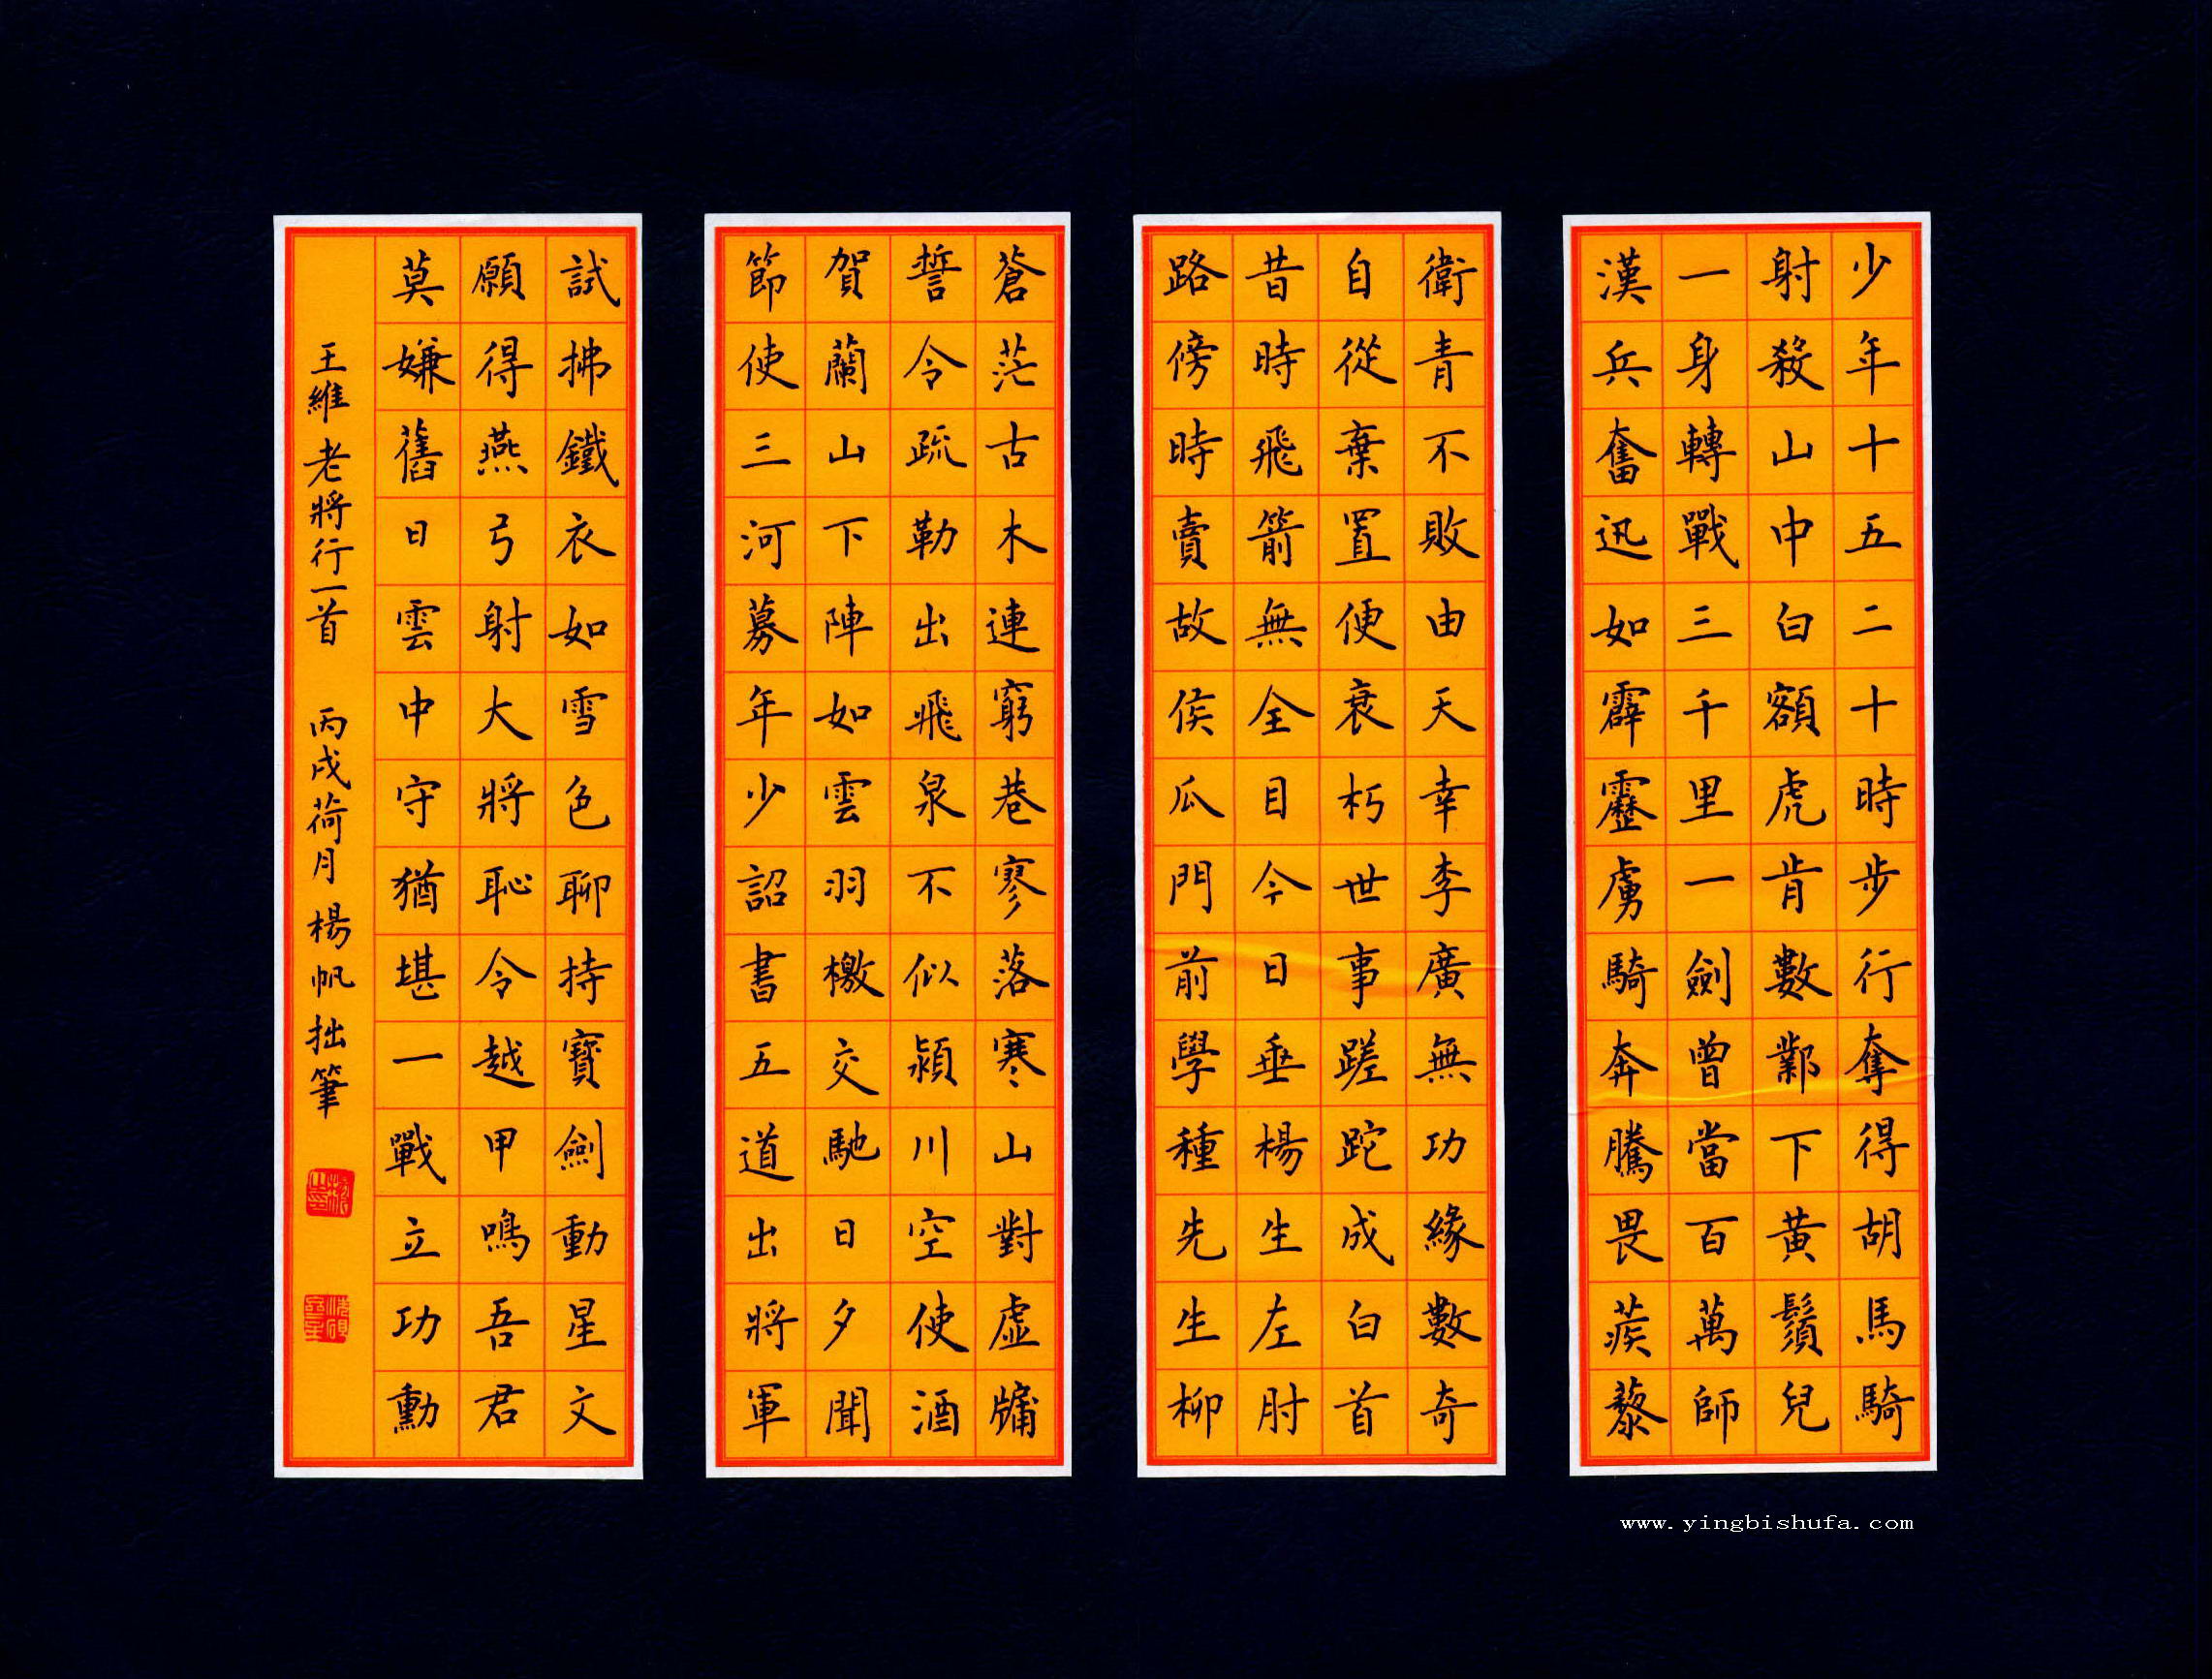 少年十五二十時步行奪得胡馬騎
射殺山中白額虎肯數鄴下黃鬚兒
一身轉戰三千里一劍曾當百萬師
漢兵奮迅如霹靂虜騎奔騰畏蒺藜
衛青不敗由天幸李廣無功緣數奇
自從棄置便衰朽世事蹉跎成白首
昔時飛箭無全目今日垂楊生左肘
路傍時賣故侯瓜門前學種先生柳
蒼茫古木連窮巷寥落寒山對虛牖
誓令疏勒出飛泉不似潁川空使酒
賀蘭山下陣如雲羽檄交馳日夕聞
節使三河募年少詔書五道出將軍
試拂鐵衣如雪色聊持寶劍動星文
願得燕弓射大將恥令越甲鳴吾君
莫嫌舊日雲中守猶堪一戰立功勳
王維老將行一首 丙戌荷月楊帆拙筆
www.yingbishufa.com